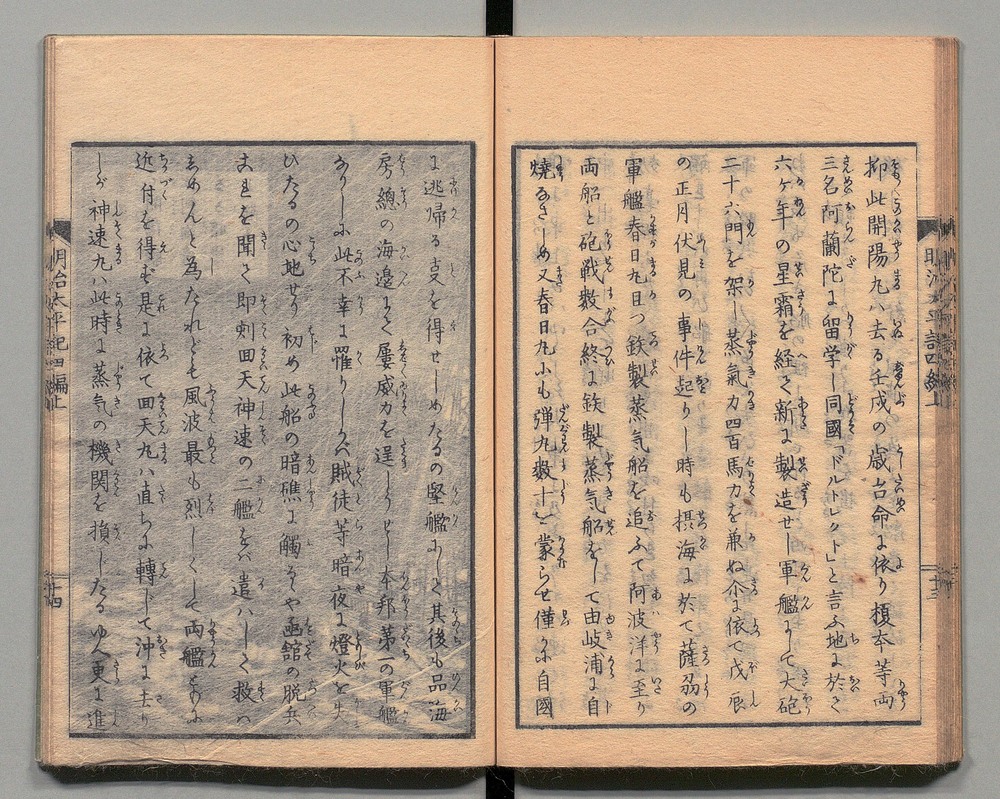 抑此開陽丸ハ去る壬戌の歳台命に依り榎本等両
三名阿蘭陀に留学し同國「ドルトレクト」と言ふ地に於て
六ケ年の星霜を経て新に製造せし軍艦にして大砲
二十六門を架し蒸氣力四百馬力を兼ぬ依て戊辰
の正月伏見の事件起りし時も摂海に於て薩刕の
軍艦春日丸且つ鉄製蒸気船を追ふて阿波洋に至り
両船と砲戦数合終に鉄製蒸気船をして由岐浦に自
焼なさしめ又春日丸にも弾丸数十を蒙らせ僅に自國
に逃帰る支を得せしめたるの堅艦にして其後も品海
房總の海邊にて屢威力を逞しうせし本邦第一の軍艦
なりしに此不幸に罹りしハ賊徒等暗夜に燈火を失
ひたるの心地せり初め此船の暗礁に觸るゝや函舘の脱兵
これを聞て即刻回天神速の二艦をハ遣ハして救ハ
しめんと為たれども風波最も烈しくして両艦ともに
近付を得ず是に依て回天丸ハ直ちに轉じて沖に去り
しが神速丸ハ此時に蒸気の機関を損したるゆへ更に進
明治太平記四編上
十三
明治太平記四編上
十四